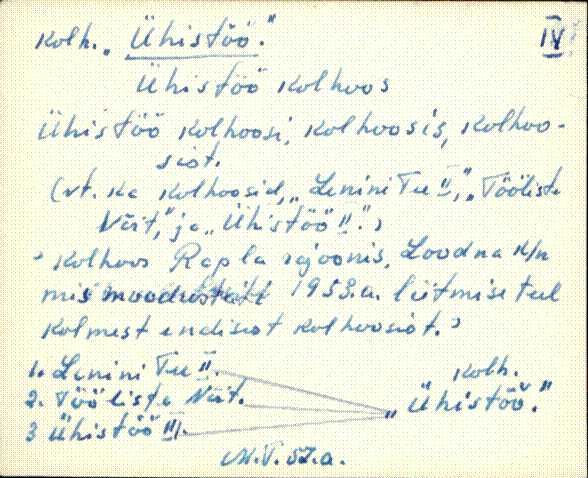 Kolh. „Ühistöö." IV
Ühistöö kolhoos
Ühistöö kolhoosi, kolhoosis, kolhoo-
sist.
(vt. ka kolhoosid, „Lenini Tee II", „Tööliste
Võit," ja „Ühistöö II".)
' Kolhoos Rapla rajoonis, Loodna k/n
mis moodustati 1953.a. liitmise teel
kolmest endisest kolhoosist.'
1. Lenini Tee II.
2. Tööliste Võit.
3 Ühistöö III.
Kolh.
„Ühistöö."
M.T. 57.a.